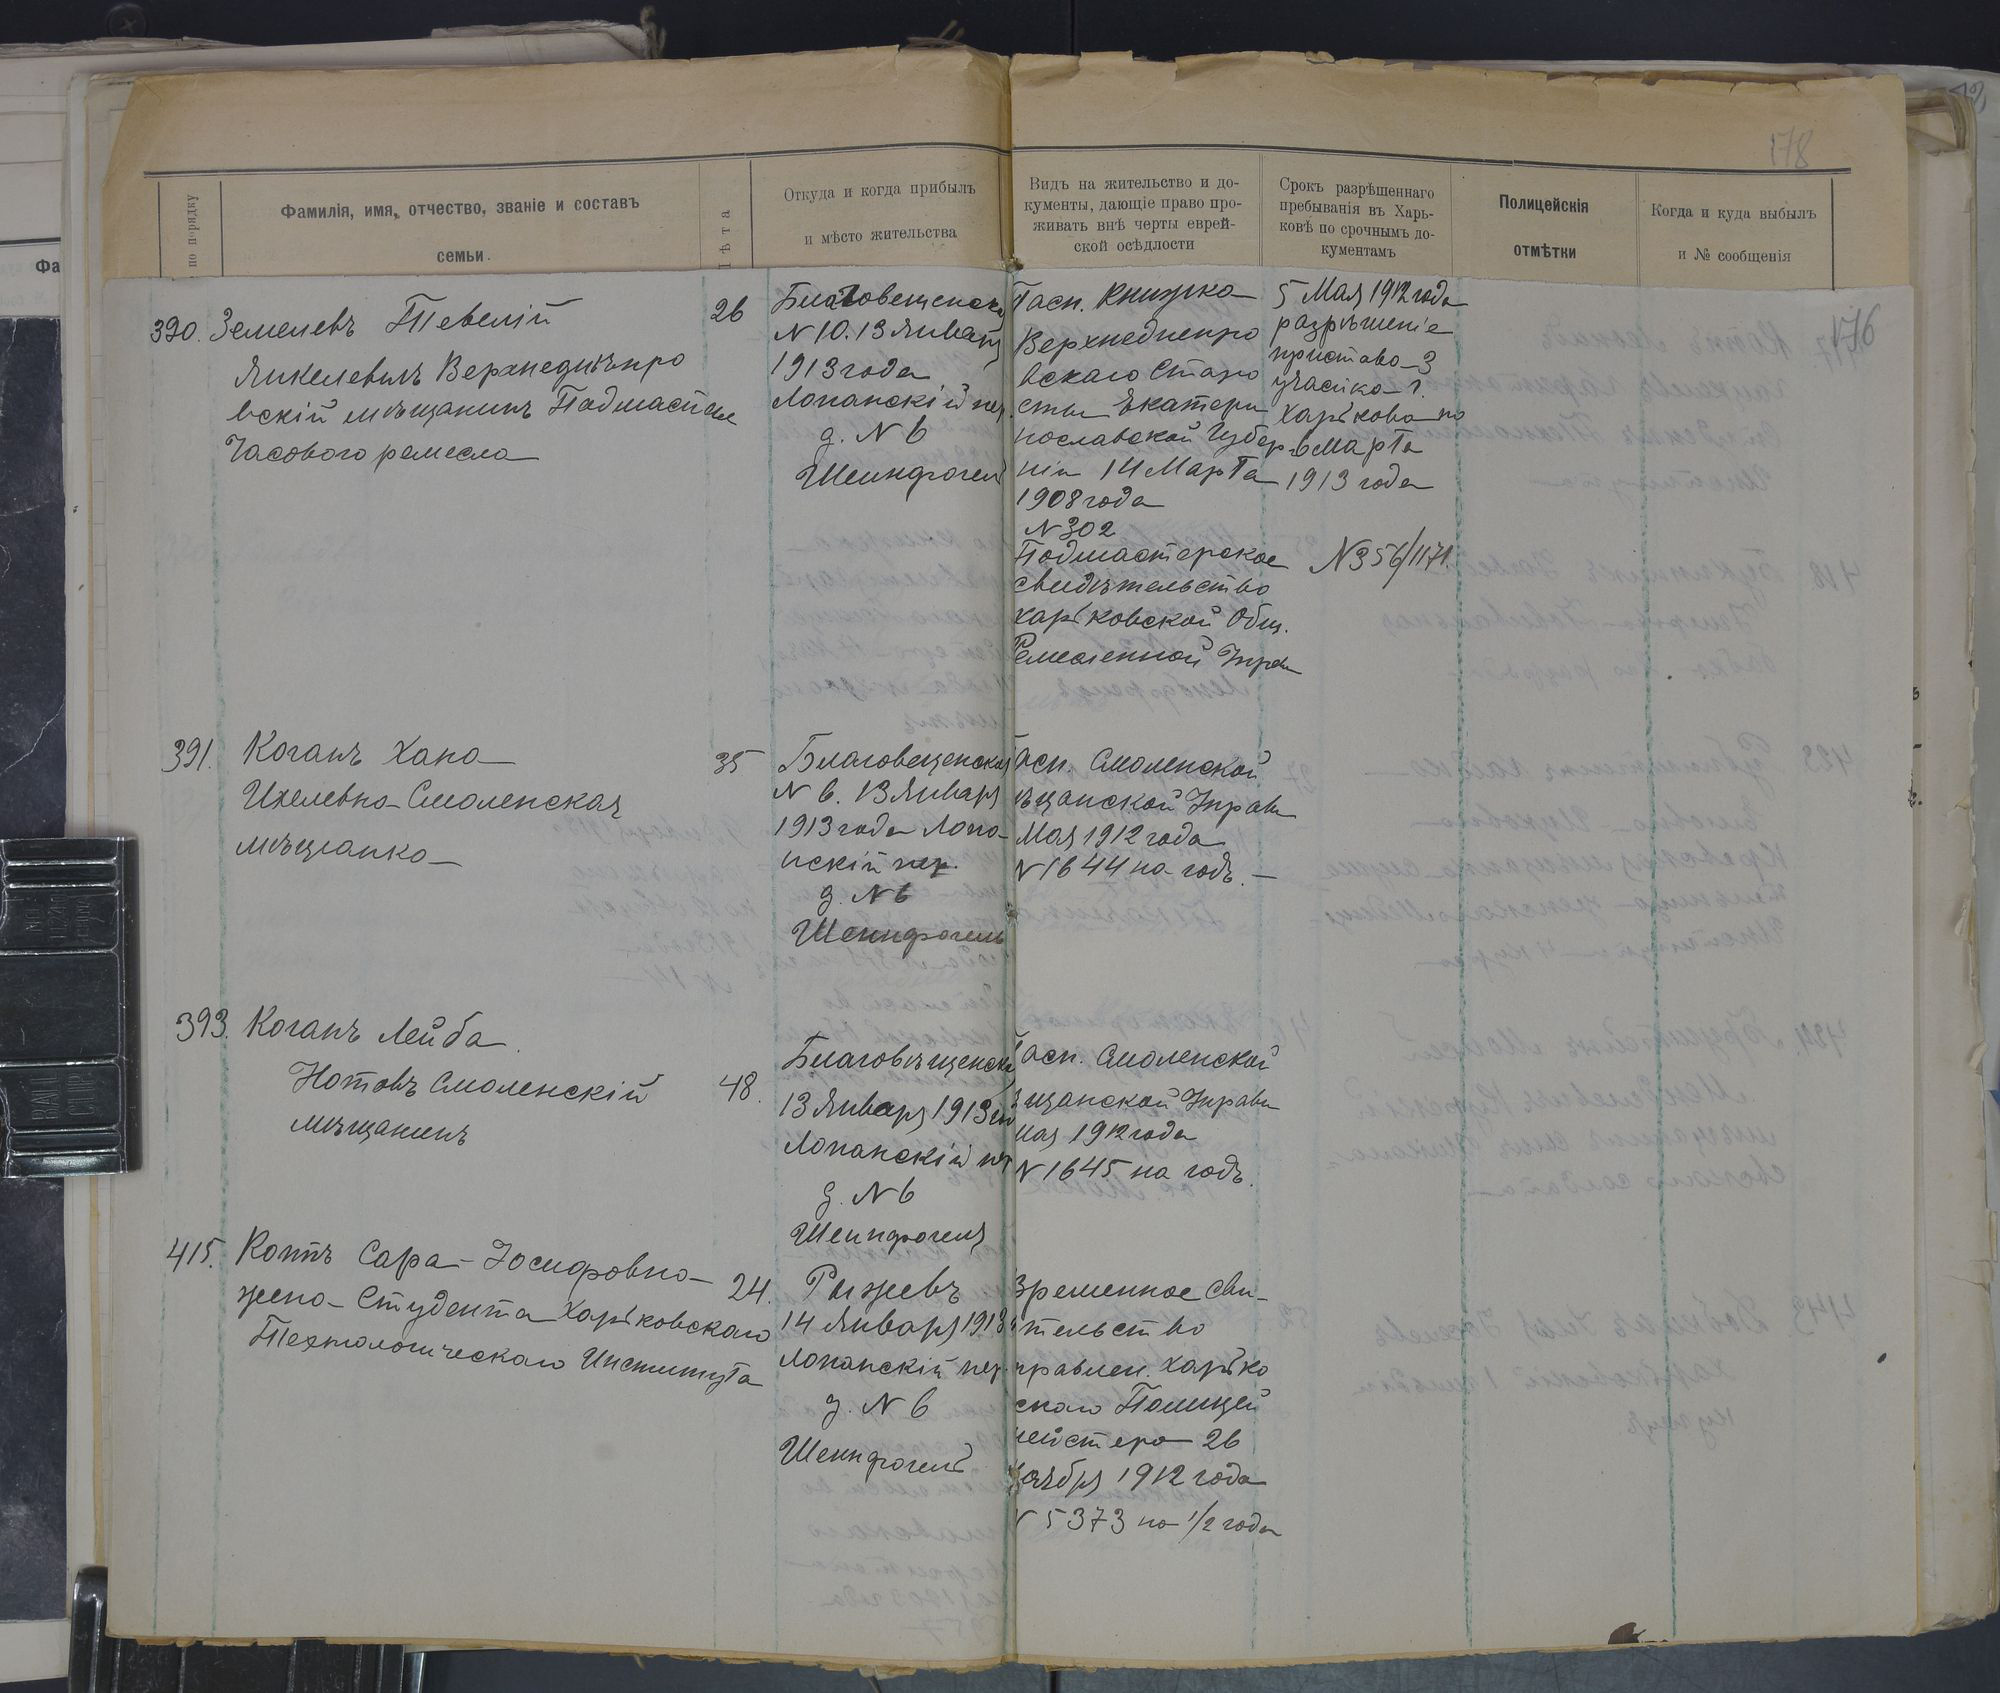 178
по порядку
Фамилія, имя, отчество, званіе и составъ
семьи.
Лѣта
Откуда и когда прибылъ
и мѣсто жительства
Видъ на жительство и до-
кументы, дающіе право про-
живать внѣ черты еврей-
ской осѣдлости
Срокъ разрѣшеннаго
пребыванія въ Харь-
ковѣ по срочнымъ до-
кументамъ
Полицейскія
отмѣтки
Когда и куда выбылъ
и № сообщенія
176
390. Земелевъ Тевелій
Янкелевичъ Верхнеднѣпро
вскій мѣщанинъ Подмастье
Часового ремесла
26
Благовещенская
N 10. 13 Января
1913 года
Лопанскій пер.
д. N 6
Шеинфогель
Пасп. Книжка
Верхнеднепро
вскаго Старо
сты Екатери
нославской Губер
ніи 14 Марта
1908 года
N 302
Подмастерское
свидѣтельство
харьковской Общ.
Ремесленной Управ
5 Мая 1912 года
разрѣшеніе
пристава 3
участка г.
Харькова по
6 Марта
1913 года
N 356/1171.
391. Коганъ Хана
Ихелевна Смоленская
мѣщанка
35
Благовещенская
N 6. 13 Января
1913 года Лопа-
нскій пер.
д. N 6
Шеинфогель
асп. Смоленской
ѣщанской Управы
Мая 1912 года
N 1644 на годъ. —
393. Коганъ Лейба
Нотовъ Смоленскій
мѣщанинъ
48.
Благовѣщенска
13 Января 1913 го
Лопанскій пер
д. N 6
Шеинфогель
асп. Смоленской
щанской Управы
мая 1912 года
N 1645 на годъ.
415. Коттъ Сара Іосифовна
жена Студента Харьковскаго
Технологическаго Института
24.
Рыжевъ
14 Января 1913
Лопанскій пер.
д. N 6
Шеинфогель
Временное сви-
тельство
правлен. Харько
скаго Полицей
мейстера 26
оября 1912 года
N 5373 на 1/2 года